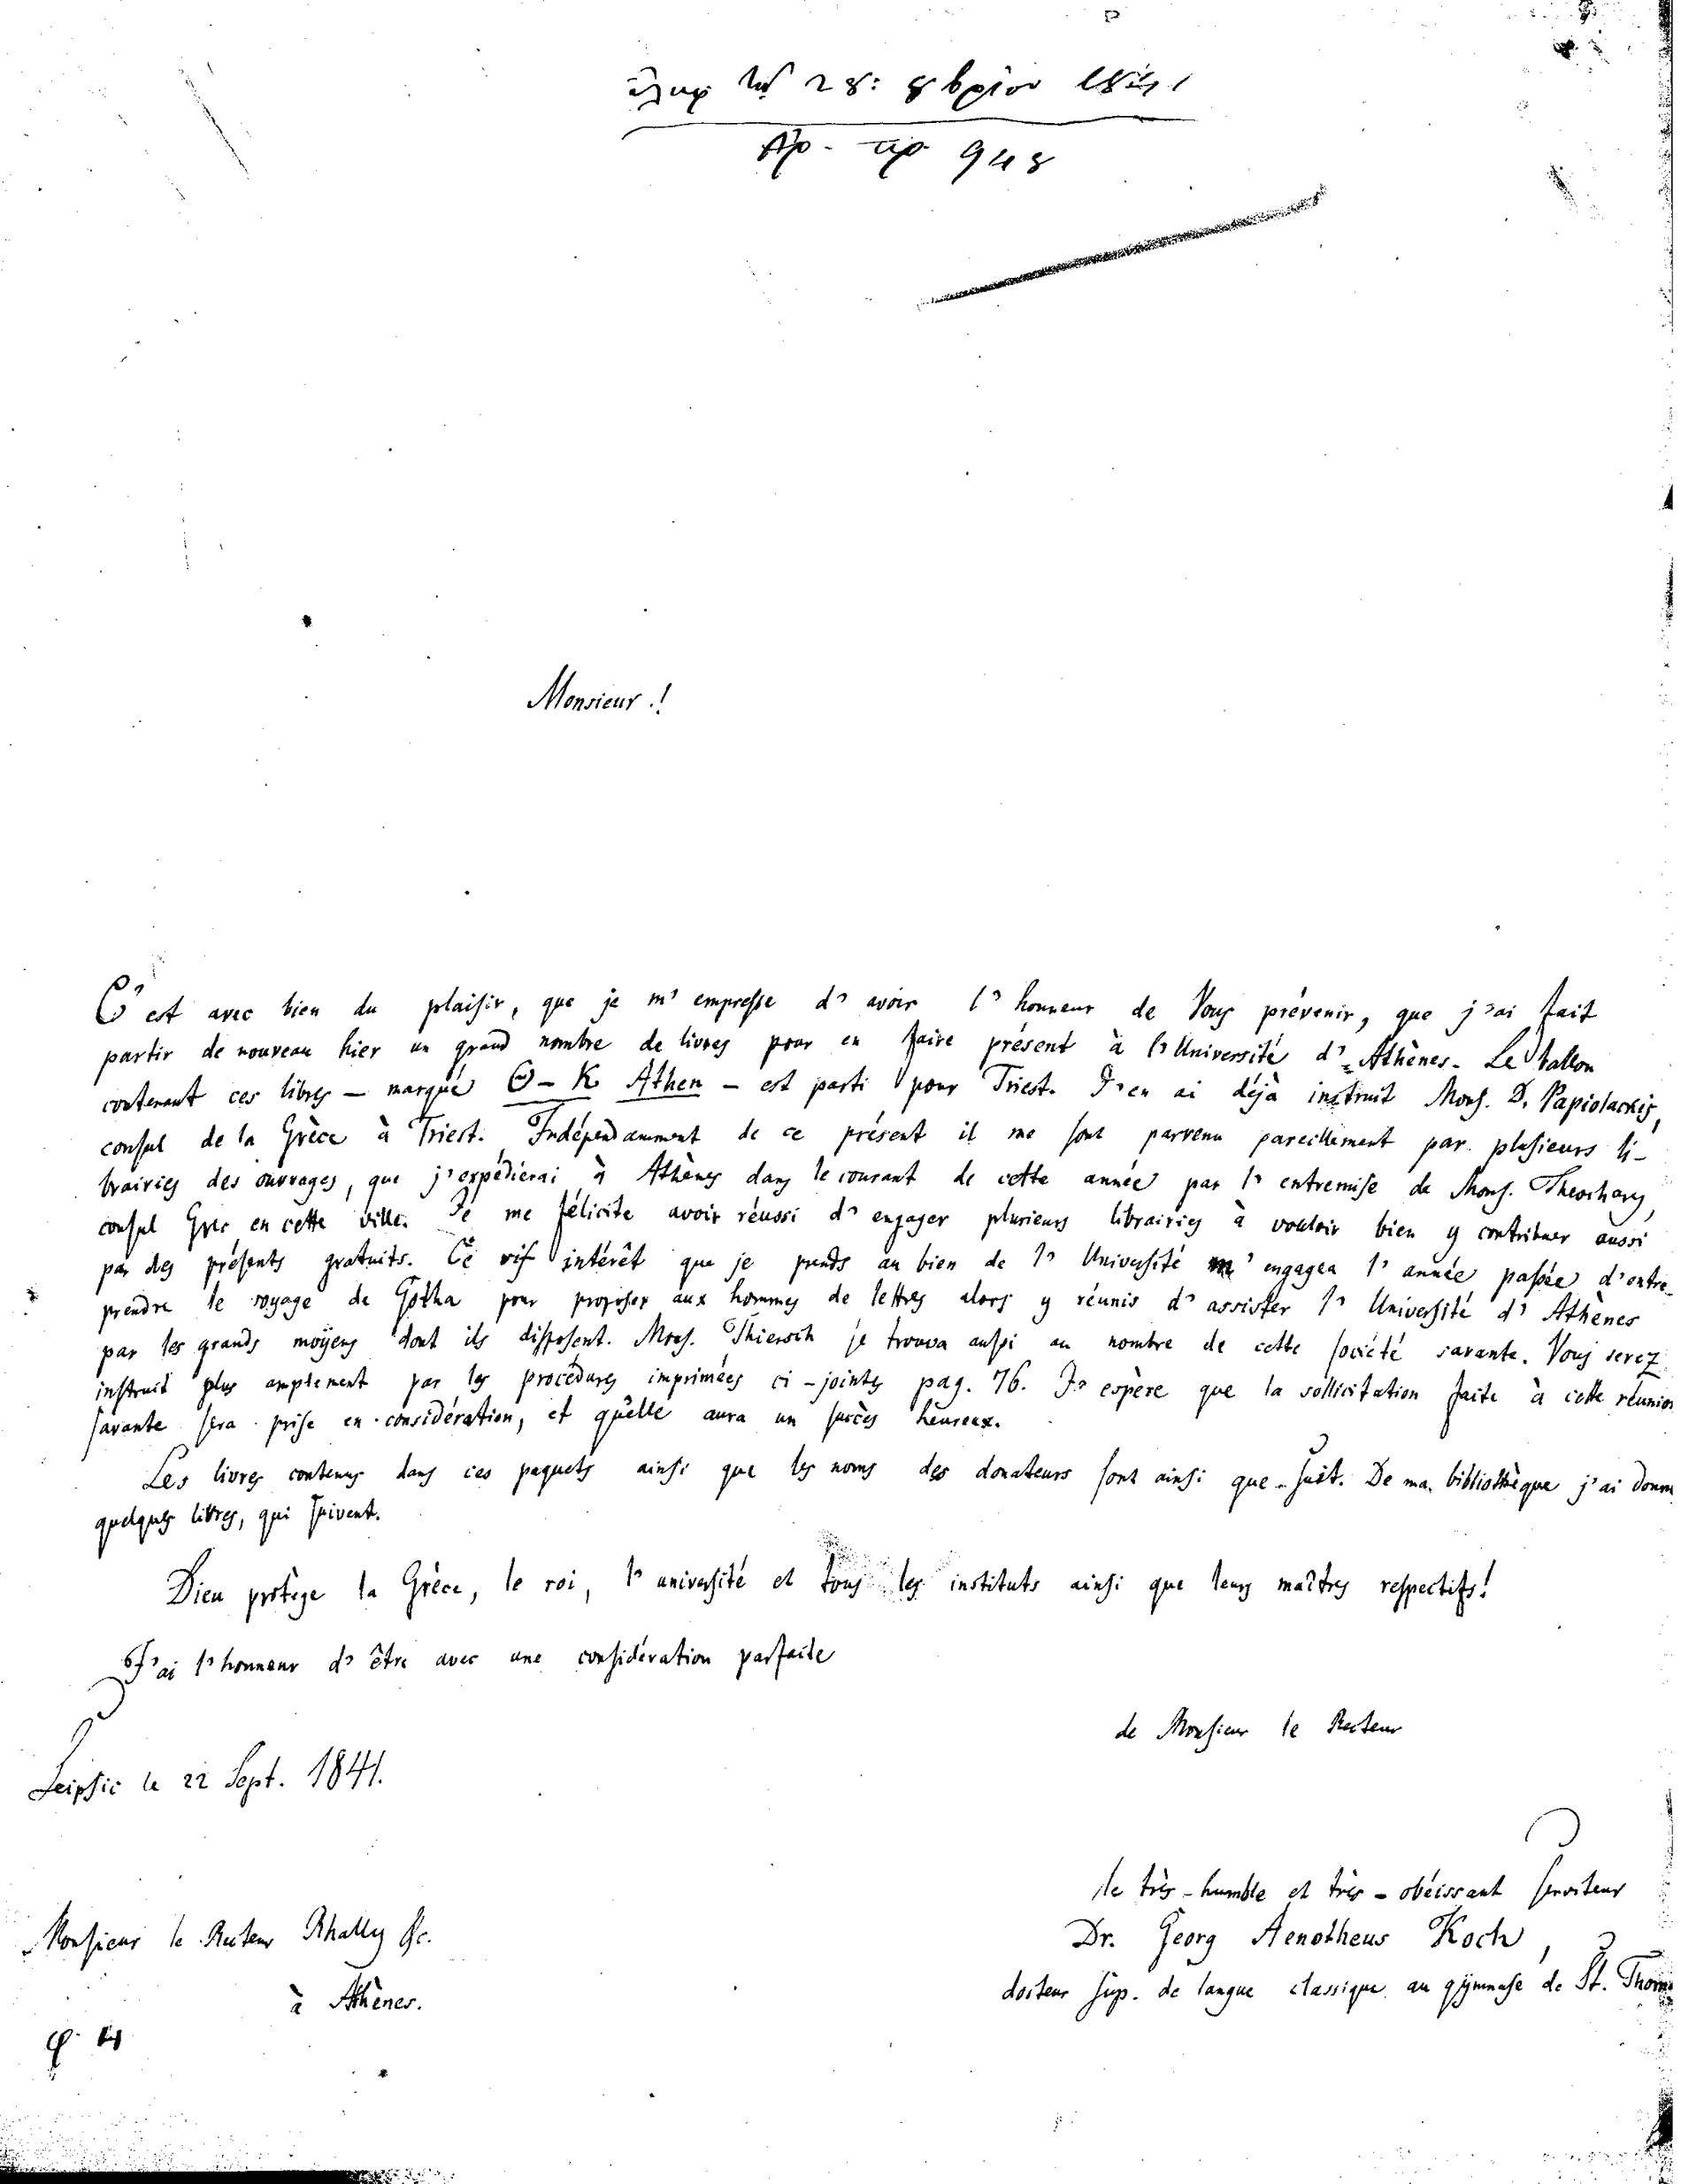 ἐλήφ. τῇ 28: 8βρίου 1841
Ἀρ. πρ 948
Monsieur!
C'est avec bien du plaisir, que je m'empresse d'avoir l'honneur de Vous prévenir, que j'ai fait
partir de nouveau hier un grand nombre de livres pour en faire présent à l'Université d'Athènes. Le ballon
contenant ces libres — marqué Θ - K Athen — est parti pour Triest. J'en ai déjà instruit Mons. D. Papiolackis,
consul de la Grèce à Triest. Indépendamment de ce présent il me sont parvenu pareillement par plusieurs li-
brairies des ouvrages, que j'expédierai à Athènes dans le courant de cette année par l'entremise de Mons. Theochary,
consul Grec en cette ville. Je me félicite avoir réussi d'engager plusieurs librairies à vouloir bien y contribuer aussi
par des présents gratuits. Ce vif intérêt que je prends au bien de l'Université m'engagea l'année passée d'entre-
prendre le voyage de Gotha pour proposer aux hommes de lettres alors y réunis d'assister l'Université d'Athènes
par les grands moÿens dont ils disposent. Mons. Thiersch se trouva aussi au nombre de cette société savante. Vous serez
instruit plus amplement par les procédures imprimées ci-jointes pag. 76. J'espère que la sollicitation faite à cette réunion
savante sera prise en considération, et qu'elle aura un succès heureux.
Les livres contenus dans ces paquets ainsi que les noms des donateurs sont ainsi que suit. De ma bibliothèque j'ai donn
quelques livres, qui suivent.
Dieu protège la Grèce, le roi, l'université et tous les instituts ainsi que leurs maîtres respectifs!
J'ai l'honneur d'être avec une considération parfaite
de Monsieur le Recteur
Leipsic le 22 Sept. 1841.
le très-humble et très-obéissant serviteur
Monsieur le Recteur Rhally &c.
Dr. Georg Aenotheus Koch,
à Athènes.
docteur sup. de langue classique au gÿmnase de St. Thom